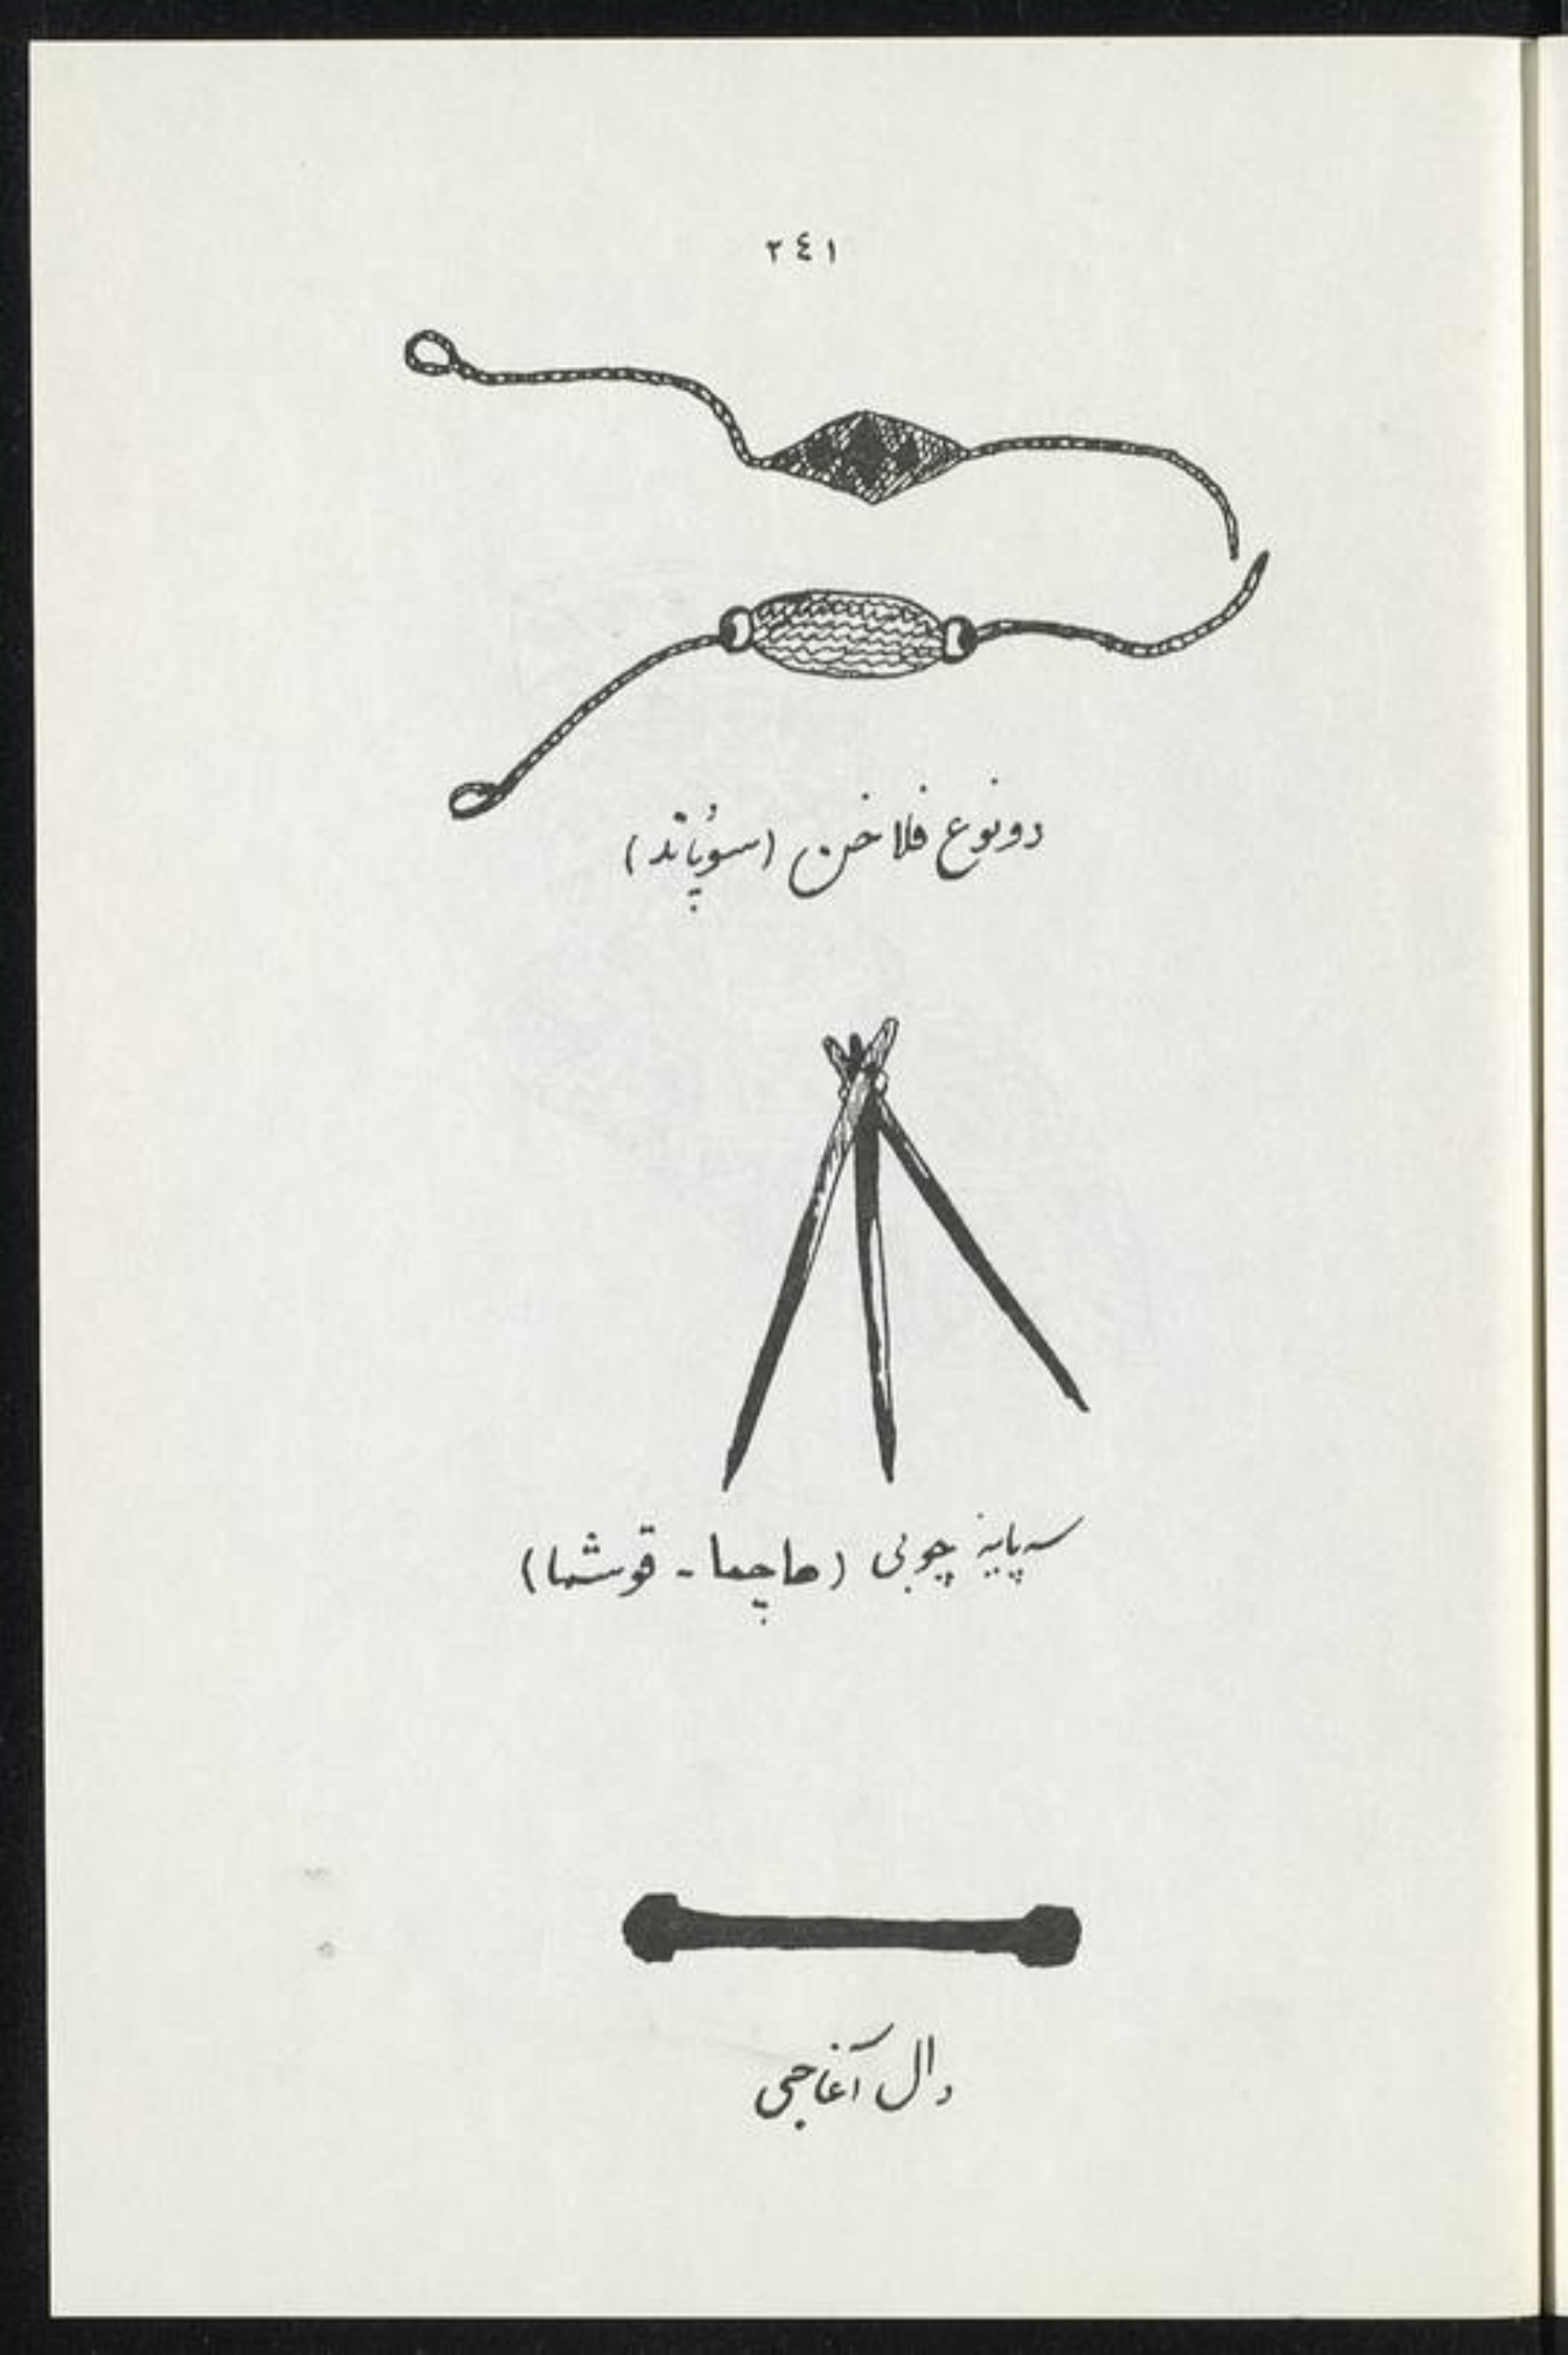 ٢٤١
دو نوع فلاخن (سوُپاند)
سه پایهٔ چوبی (هاچما - قوشما)
دال آغاجی